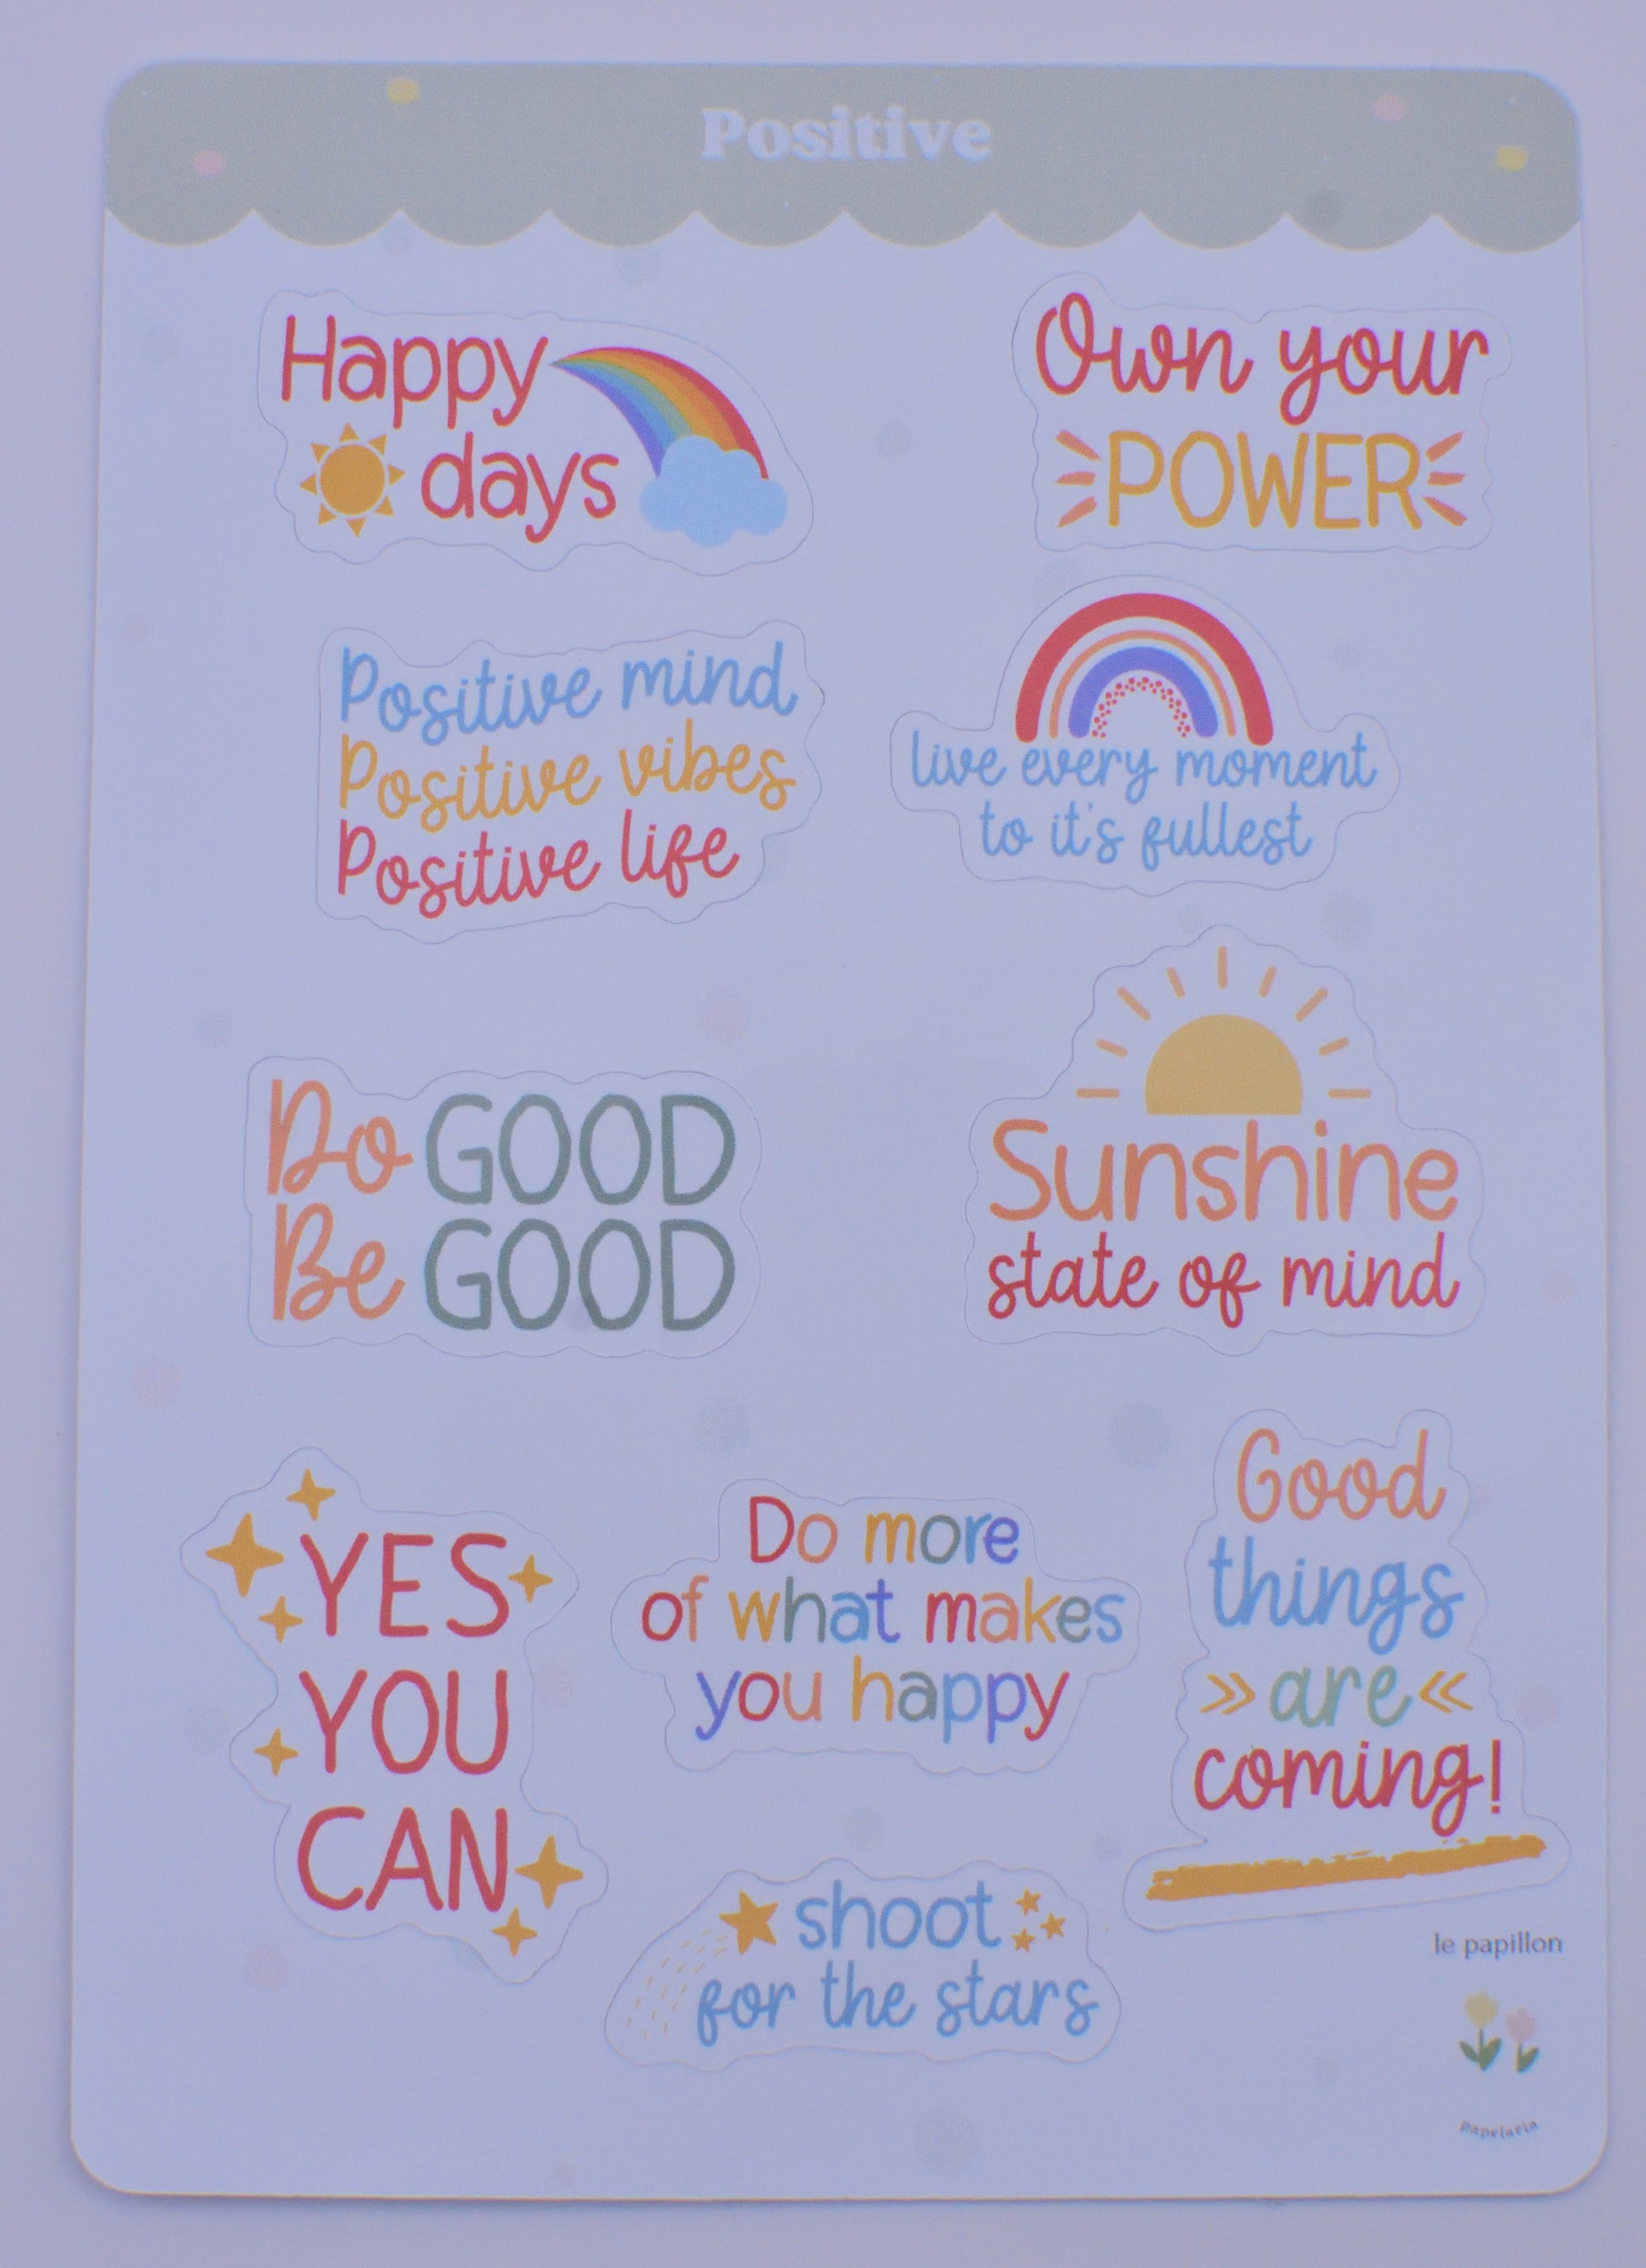 Positive
Happy
days
Own your
POWER
Positive mind
Positive vibes
Positive life
live every moment
to it's fullest
Do GOOD
Be GOOD
Sunshine
state of mind
YES
YOU
CAN
Do more
of what makes
you happy
Good
things
are
coming!
shoot
for the stars
le papillon
papelaria